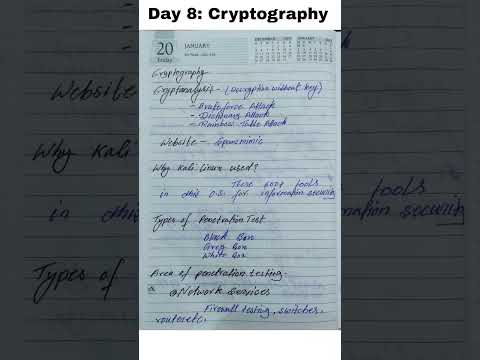 Day 8: Cryptography
20
Friday
JANUARY
DECEMBER
JANUARY
Cryptography
Cryptanalysis - (Decryption without key)
- Bruteforce Attack
- Dictionary Attack
- Rainbow Table Attack
Website - Spammimic
Why Kali linux used?
There 600+ tools
in this O.S. for information security
Types of Penetration Test
Black Box
Grey Box
White Box
Area of penetration testing.
Network Services
Firewall testing, switches,
router etc.
Website
Why Kali
in this
tools
mation security
Types of